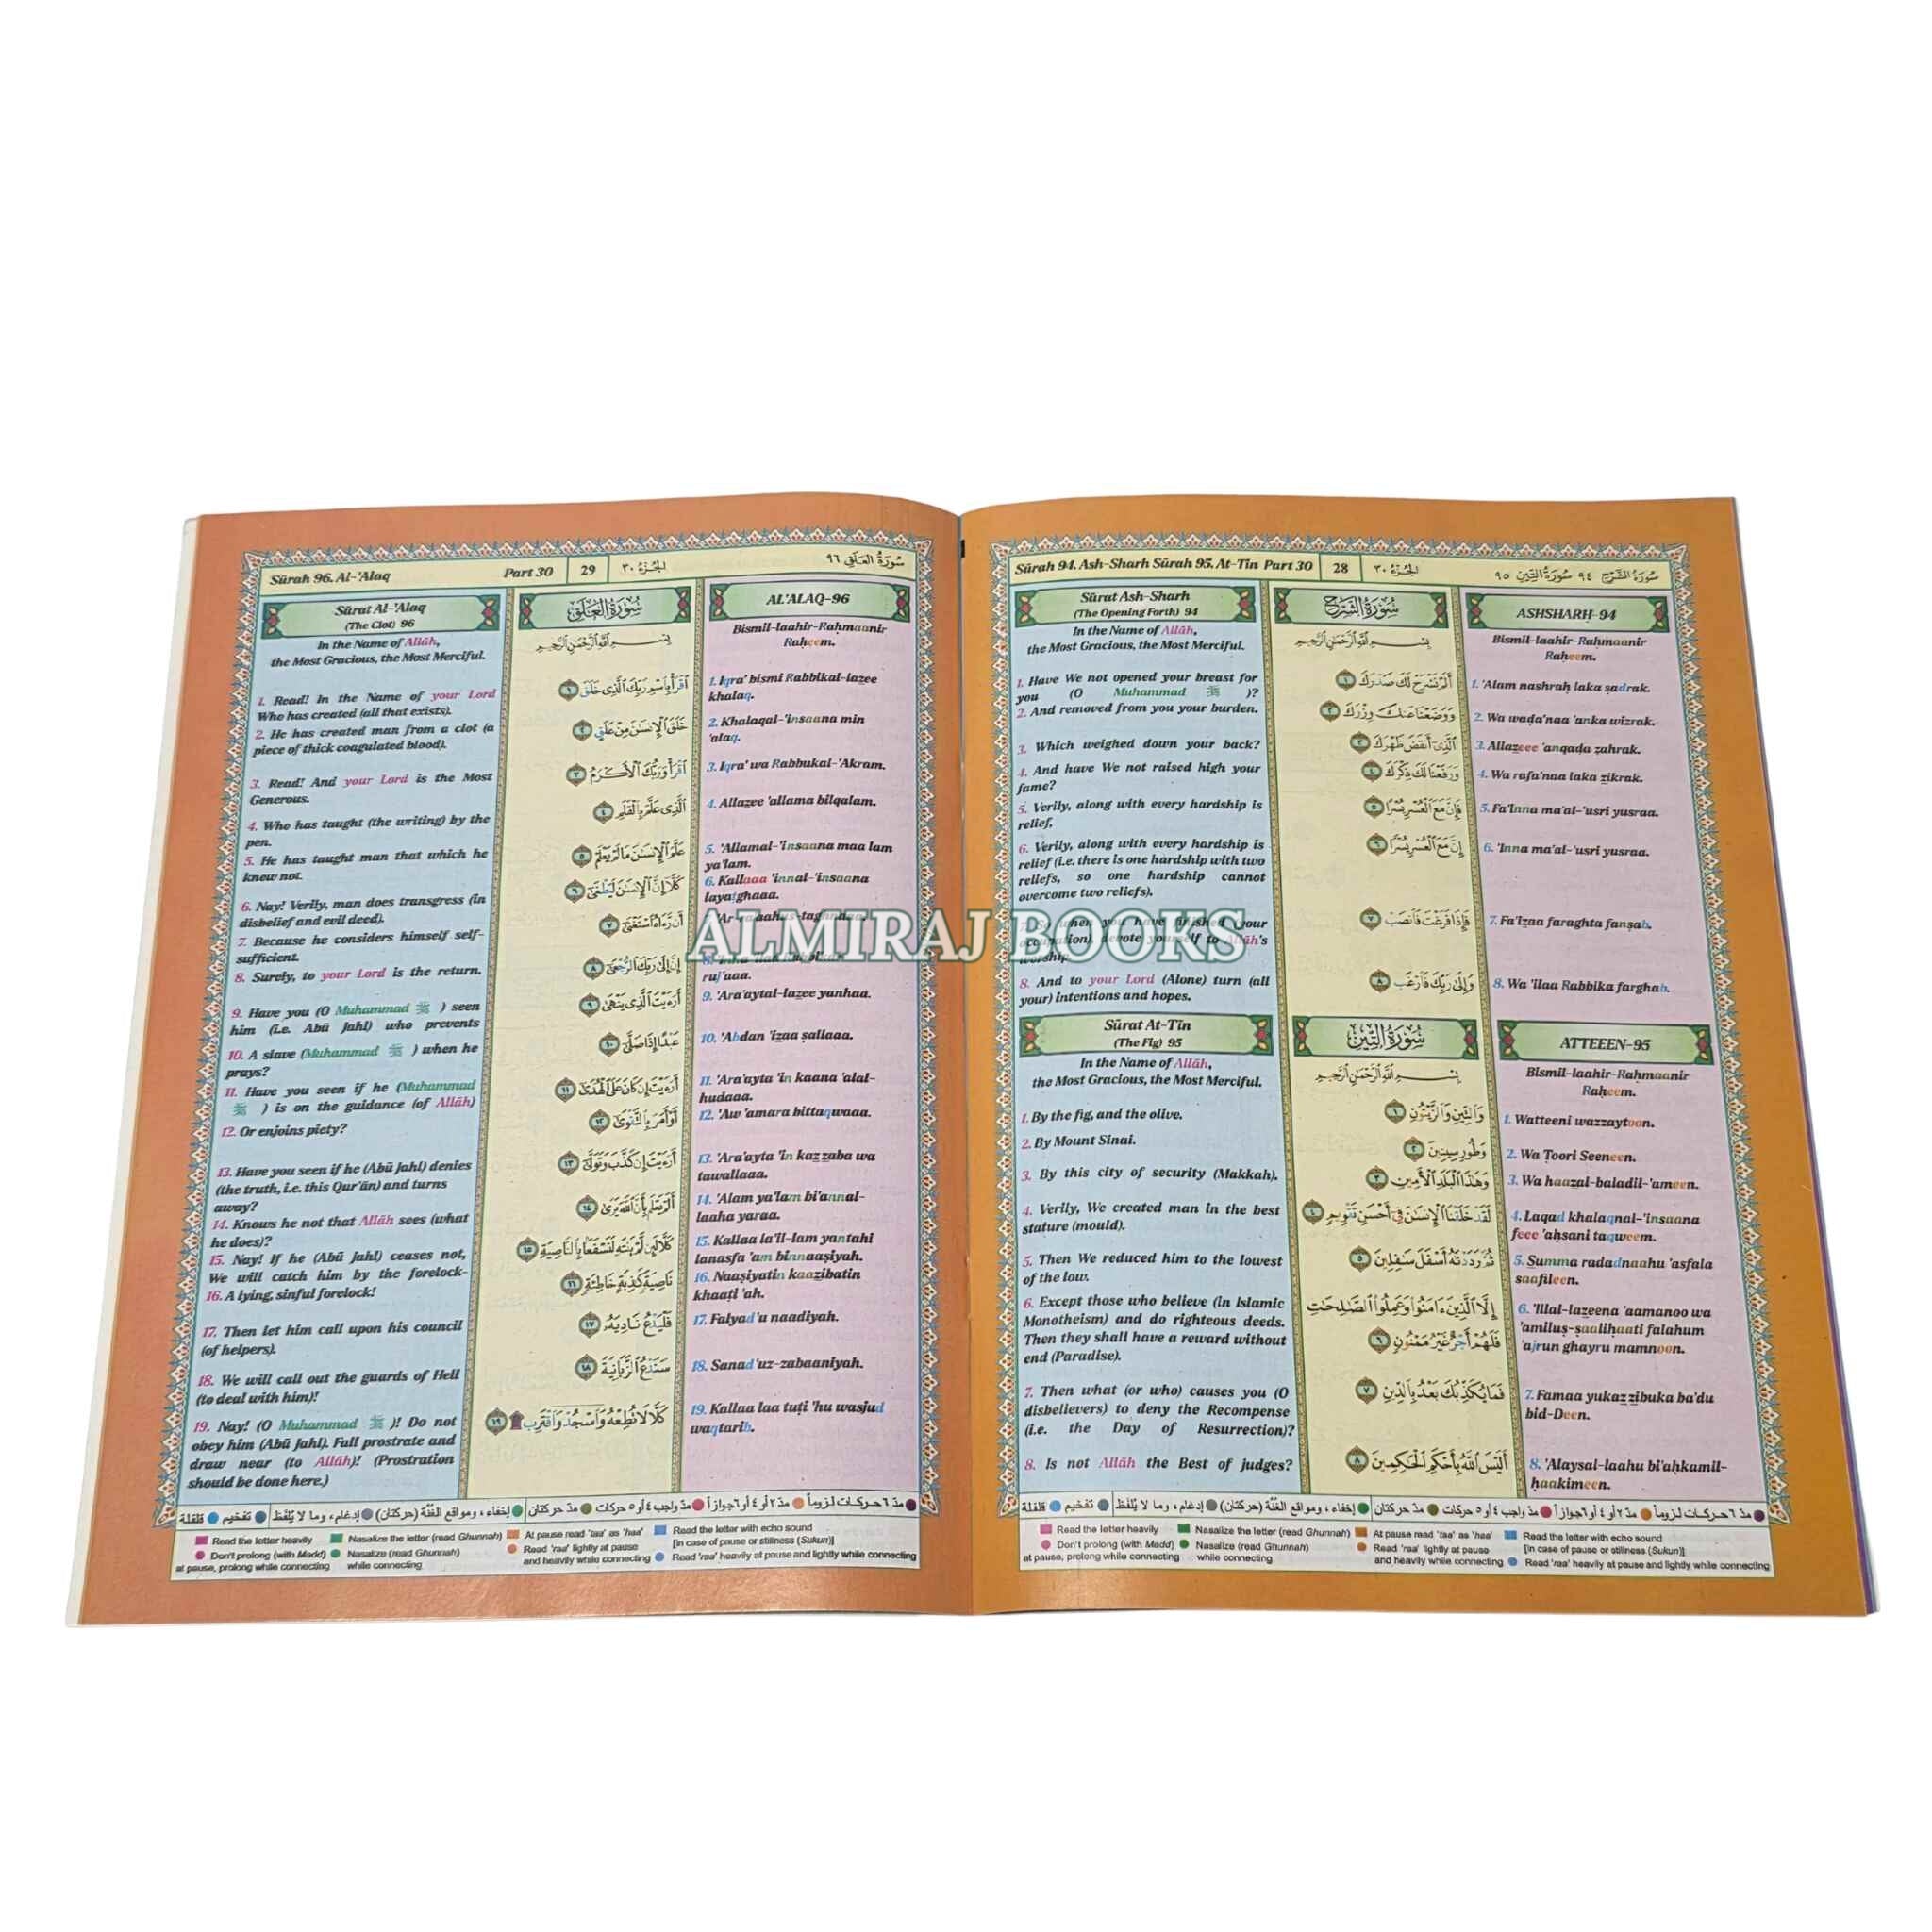 Sūrah 96. Al-'Alaq
Part 30
29
الجزء ٣٠
سورة العلق ٩٦
Sūrat Al-'Alaq
(The Clot) 96
In the Name of Allāh,
the Most Gracious, the Most Merciful.
1. Read! In the Name of your Lord
Who has created (all that exists).
2. He has created man from a clot (a
piece of thick coagulated blood).
3. Read! And your Lord is the Most
Generous.
4. Who has taught (the writing) by the
pen.
5. He has taught man that which he
knew not.
6. Nay! Verily, man does transgress (in
disbelief and evil deed).
7. Because he considers himself self-
sufficient.
8. Surely, to your Lord is the return.
9. Have you (O Muhammad ﷺ ) seen
him (i.e. Abū Jahl) who prevents
10. A slave (Muhammad ﷺ ) when he
prays?
11. Have you seen if he (Muhammad
ﷺ ) is on the guidance (of Allāh)
12. Or enjoins piety?
13. Have you seen if he (Abū Jahl) denies
(the truth, i.e. this Qur'ān) and turns
away?
14. Knows he not that Allāh sees (what
he does)?
15. Nay! If he (Abū Jahl) ceases not,
We will catch him by the forelock-
16. A lying, sinful forelock!
17. Then let him call upon his council
(of helpers).
18. We will call out the guards of Hell
(to deal with him)!
19. Nay! (O Muhammad ﷺ )! Do not
obey him (Abū Jahl). Fall prostrate and
draw near (to Allāh)! (Prostration
should be done here.)
سورة العلق
بسم الله الرحمن الرحيم
اقرأ باسم ربك الذي خلق ١
خلق الإنسان من علق ٢
اقرأ وربك الأكرم ٣
الذي علم بالقلم ٤
علم الإنسان ما لم يعلم ٥
كلا إن الإنسان ليطغى ٦
أن رءاه استغنى ٧
إن إلى ربك الرجعى ٨
أرءيت الذي ينهى ٩
عبدا إذا صلى ١٠
أرءيت إن كان على الهدى ١١
أو أمر بالتقوى ١٢
أرءيت إن كذب وتولى ١٣
ألم يعلم بأن الله يرى ١٤
كلا لئن لم ينته لنسفعا بالناصية ١٥
ناصية كاذبة خاطئة ١٦
فليدع ناديه ١٧
سندع الزبانية ١٨
كلا لا تطعه واسجد واقترب ۩ ١٩
AL'ALAQ-96
Bismil-laahir-Raḥmaanir
Raḥeem.
1. Iqra' bismi Rabbikal-lazee
khalaq.
2. Khalaqal-'insaana min
'alaq.
3. Iqra' wa Rabbukal-'Akram.
4. Allazee 'allama bilqalam.
5. 'Allamal-'insaana maa lam
ya'lam.
6. Kallaaa 'innal-'insaana
layaṭghaaa.
ruj'aaa.
9. 'Ara'aytal-lazee yanhaa.
10. 'Abdan 'izaa ṣallaaa.
11. 'Ara'ayta 'in kaana 'alal-
hudaaa.
12. 'Aw 'amara bittaqwaaa.
13. 'Ara'ayta 'in kazzaba wa
tawallaaa.
14. 'Alam ya'lam bi'annal-
laaha yaraa.
15. Kallaa la'il-lam yantahi
lanasfa 'am binnaaṣiyah.
16. Naaṣiyatin kaazibatin
khaaṭi 'ah.
17. Falyad'u naadiyah.
18. Sanad'uz-zabaaniyah.
19. Kallaa laa tuṭi 'hu wasjud
waqtarib.
مد ٦ حركات لزوماً مد ٢ أو ٤ أو ٦ جوازاً مد واجب ٤ أو ٥ حركات مد حركتان إخفاء، ومواقع الغنة (حركتان) إدغام، وما لا يلفظ تفخيم قلقلة
Read the letter heavily Nasalize the letter (read Ghunnah) At pause read 'taa' as 'haa' Read the letter with echo sound
[in case of pause or stillness (Sukun)]
Don't prolong (with Madd) Nasalize (read Ghunnah) Read 'raa' lightly at pause
at pause, prolong while connecting while connecting and heavily while connecting Read 'raa' heavily at pause and lightly while connecting
Sūrah 94. Ash-Sharh Sūrah 95. At-Tīn Part 30
28
الجزء ٣٠
سورة الشرح ٩٤ سورة التين ٩٥
Sūrat Ash-Sharh
(The Opening Forth) 94
In the Name of Allāh,
the Most Gracious, the Most Merciful.
1. Have We not opened your breast for
you (O Muhammad ﷺ )?
2. And removed from you your burden.
3. Which weighed down your back?
4. And have We not raised high your
fame?
5. Verily, along with every hardship is
relief,
6. Verily, along with every hardship is
relief (i.e. there is one hardship with two
reliefs, so one hardship cannot
overcome two reliefs).
7. So when you have finished (your
occupation), devote yourself to Allāh's
worship.
8. And to your Lord (Alone) turn (all
your) intentions and hopes.
Sūrat At-Tīn
(The Fig) 95
In the Name of Allāh,
the Most Gracious, the Most Merciful.
1. By the fig, and the olive.
2. By Mount Sinai.
3. By this city of security (Makkah).
4. Verily, We created man in the best
stature (mould).
5. Then We reduced him to the lowest
of the low.
6. Except those who believe (in Islamic
Monotheism) and do righteous deeds.
Then they shall have a reward without
end (Paradise).
7. Then what (or who) causes you (O
disbelievers) to deny the Recompense
(i.e. the Day of Resurrection)?
8. Is not Allāh the Best of judges?
سورة الشرح
بسم الله الرحمن الرحيم
ألم نشرح لك صدرك ١
ووضعنا عنك وزرك ٢
الذي أنقض ظهرك ٣
ورفعنا لك ذكرك ٤
فإن مع العسر يسرا ٥
إن مع العسر يسرا ٦
فإذا فرغت فانصب ٧
وإلى ربك فارغب ٨
سورة التين
بسم الله الرحمن الرحيم
والتين والزيتون ١
وطور سينين ٢
وهذا البلد الأمين ٣
لقد خلقنا الإنسان في أحسن تقويم ٤
ثم رددناه أسفل سافلين ٥
إلا الذين ءامنوا وعملوا الصالحات
فلهم أجر غير ممنون ٦
فما يكذبك بعد بالدين ٧
أليس الله بأحكم الحاكمين ٨
ASHSHARḤ-94
Bismil-laahir-Raḥmaanir
Raḥeem.
1. 'Alam nashraḥ laka ṣadrak.
2. Wa waḍa'naa 'anka wizrak.
3. Allazeee 'anqaḍa ẓahrak.
4. Wa rafa'naa laka zikrak.
5. Fa'Inna ma'al-'usri yusraa.
6. 'Inna ma'al-'usri yusraa.
7. Fa'Izaa faraghta fanṣab.
8. Wa 'ilaa Rabbika farghab.
ATTEEEN-95
Bismil-laahir-Raḥmaanir
Raḥeem.
1. Watteeni wazzaytoon.
2. Wa Ṭoori Seeneen.
3. Wa haazal-baladil-'ameen.
4. Laqad khalaqnal-'insaana
feee 'aḥsani taqweem.
5. Summa radadnaahu 'asfala
saafileen.
6. 'Illal-lazeena 'aamanoo wa
'amiluṣ-ṣaaliḥaati falahum
'ajrun ghayru mamnoon.
7. Famaa yukazzibuka ba'du
bid-Deen.
8. 'Alaysal-laahu bi'aḥkamil-
ḥaakimeen.
مد ٦ حركات لزوماً مد ٢ أو ٤ أو ٦ جوازاً مد واجب ٤ أو ٥ حركات مد حركتان إخفاء، ومواقع الغنة (حركتان) إدغام، وما لا يلفظ تفخيم قلقلة
Read the letter heavily Nasalize the letter (read Ghunnah) At pause read 'taa' as 'haa' Read the letter with echo sound
[in case of pause or stillness (Sukun)]
Don't prolong (with Madd) Nasalize (read Ghunnah) Read 'raa' lightly at pause
at pause, prolong while connecting while connecting and heavily while connecting Read 'raa' heavily at pause and lightly while connecting
ALMIRAJ BOOKS